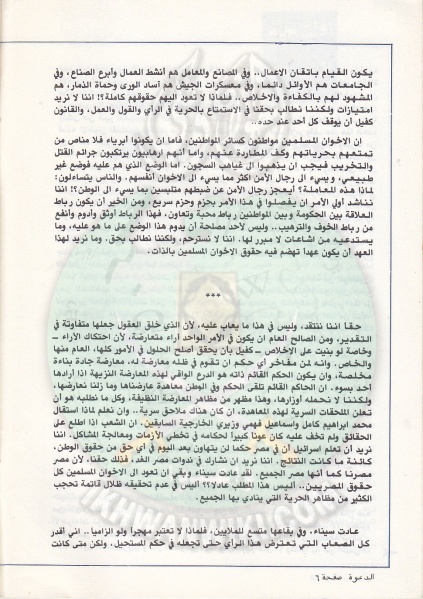 يكون القيام باتقان الاعمال.. وفى المصانع والمعامل هم أنشط العمال وأبرع الصناع، وفى
الجامعات هم الأوائل دائما، وفى معسكرات الجيش هم أساد الورى وحماة الذمار، هم
المشهود لهم بالكفاءة والاخلاص.. فلماذا لا تعود اليهم حقوقهم كاملة؟! اننا لا نريد
امتيازات ولكننا نطالب بحقنا فى الاستمتاع بالحرية فى الرأى والقول والعمل، والقانون
كفيل أن يوقف كل أحد عند حده..
ان الاخوان المسلمين مواطنون كسائر المواطنين، فاما ان يكونوا أبرياء فلا مناص من
تمتعهم بحرياتهم وكف المطاردة عنهم، واما أنهم ارهابيون يرتكبون جرائم القتل
والتخريب فيجب ان يذهبوا الى غياهب السجون. أما الوضع الذى هم عليه فوضع غير
طبيعى، ويسىء الى رجال الأمن اكثر مما يسىء الى الاخوان أنفسهم، والناس يتساءلون:
لماذا هذه المعاملة؟ أيعجز رجال الأمن عن ضبطهم متلبسين بما يسىء الى الوطن؟! اننا
نناشد أولى الأمر ان يفصلوا فى هذا الأمر بحزم وحزم سريع، ومن الخير أن يكون رباط
العلاقة بين الحكومة وبين المواطنين رباط محبة وتعاون، فهذا الرباط أوثق وأدوم وأنفع
من رباط الخوف والترهيب.. وليس لأحد مصلحة أن يدوم هذا الوضع على ما هو عليه، وما
يستدعيه من اشاعات لا مبرر لها. اننا لا نسترحم، ولكننا نطالب بحق. وما نريد لهذا
العهد أن يكون عهداً تهضم فيه حقوق الاخوان المسلمين بالذات.
***
حقا اننا ننتقد، وليس فى هذا ما يعاب عليه، لأن الذى خلق العقول جعلها متفاوتة فى
التقدير، ومن الصالح العام ان يكون فى الأمر الواحد آراء متعارضة، لأن احتكاك الآراء –
وخاصة لو بنيت على الاخلاص – كفيل بأن يحقق أصلح الحلول فى الأمور كلها، العام منها
والخاص. وانه لمن مفاخر أى حكم ان تقوم فى ظله معارضة له، معارضة جادة بناءة
مخلصة، وان يكون الحكم القائم ذاته هو الدرع الواقى لهذه المعارضة النزيهة اذا أرادها
أحد بسوء. ان الحاكم القائم تلقى الحكم وفى الوطن معاهدة عارضناها وما زلنا نعارضها،
ولكننا لا نحمله أوزارها، وهذا مظهر من مظاهر المعارضة النظيفة، وكل ما نطلبه هو أن
تعلن الملحقات السرية لهذه المعاهدة، ان كان هناك ملاحق سرية.. وان نعلم لماذا استقال
محمد ابراهيم كامل واسماعيل فهمى وزيرى الخارجية السابقين. ان الشعب اذا اطلع على
الحقائق ولم تخف عليه كان عونا كبيراً لحكامه فى تخطى الأزمات ومعالجة المشاكل. اننا
نريد أن تعلم اسرائيل أن فى مصر حكما لن يتهاون بعد اليوم فى أى حق من حقوق الوطن،
كائنة ما كانت النتائج. اننا نريد ان نشارك فى ندوات مصر الغد، فذلك حقنا، لأن مصر
مصرنا كما انها مصر الجميع. لقد عادت سيناء وبقى ان تعود الى الاخوان المسلمين كل
حقوق المصريين.. أليس هذا المطلب عادلا؟؟ أليس فى عدم تحقيقه ظلال قاتمة تحجب
الكثير من مظاهر الحرية التى ينادى بها الجميع.
عادت سيناء، وفى بقاعها متسع للملايين، فلماذا لا تعتبر مهجراً ولو الزاميا.. انى أقدر
كل الصعاب التى تعترض هذا الرأى حتى تجعله فى حكم المستحيل، ولكن متى كانت
الدعوة صفحة ٦